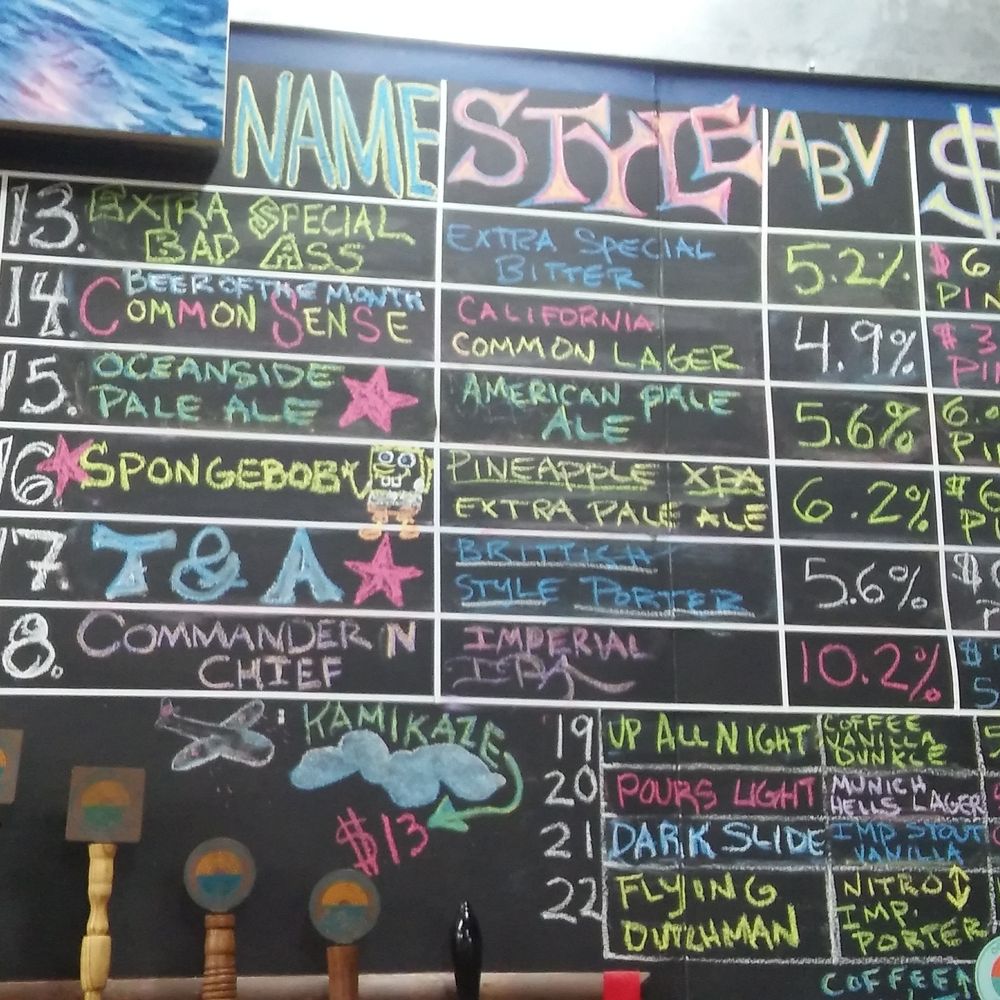 NAME STYLE ABV $
13. EXTRA SPECIAL
BAD ASS
EXTRA SPECIAL
BITTER
5.2%
$6
PIN
14. BEER OF THE MONTH
COMMON SENSE
CALIFORNIA
COMMON LAGER
4.9%
$3
PIN
15. OCEANSIDE
PALE ALE
AMERICAN PALE
ALE
5.6%
PIN
16 SPONGEBOB
PINEAPPLE XPA
EXTRA PALE ALE
6.2%
$6
17. T & A
BRITTICH
STYLE PORTER
5.6%
8. COMMANDER N
CHIEF
IMPERIAL
IPA
10.2%
KAMIKAZE
$13
19 UP ALL NIGHT
COFFEE
VANILLA
DUNKLE
20 POURS LIGHT
MUNICH
HELLS LAGER
21 DARK SLIDE
IMP STOUT
VANILLA
22 FLYING
DUTCHMAN
NITRO
IMP.
PORTER
COFFEE